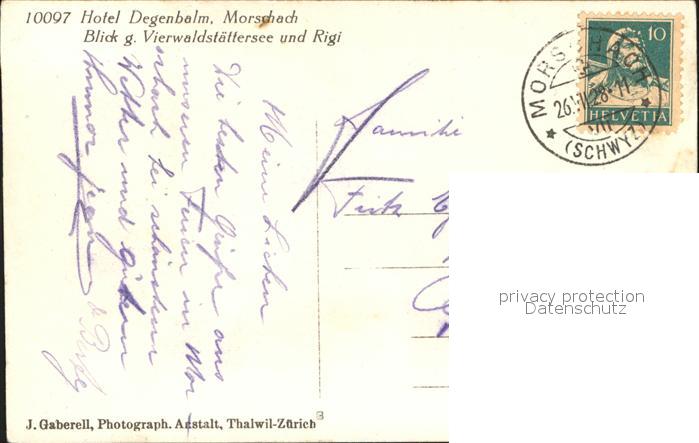 10097 Hotel Degenbalm, Morschach
Blick g. Vierwaldstättersee und Rigi
10
HELVETIA
MORSCHACH
26.VII.28.-11
(SCHWYZ)
Meine Lieben
Die besten Grüße aus
unseren Ferien in Mor-
schach bei schönstem
Wetter und gutem
Humor
Familie
Fritz
privacy protection
Datenschutz
J. Gaberell, Photograph. Anstalt, Thalwil-Zürich